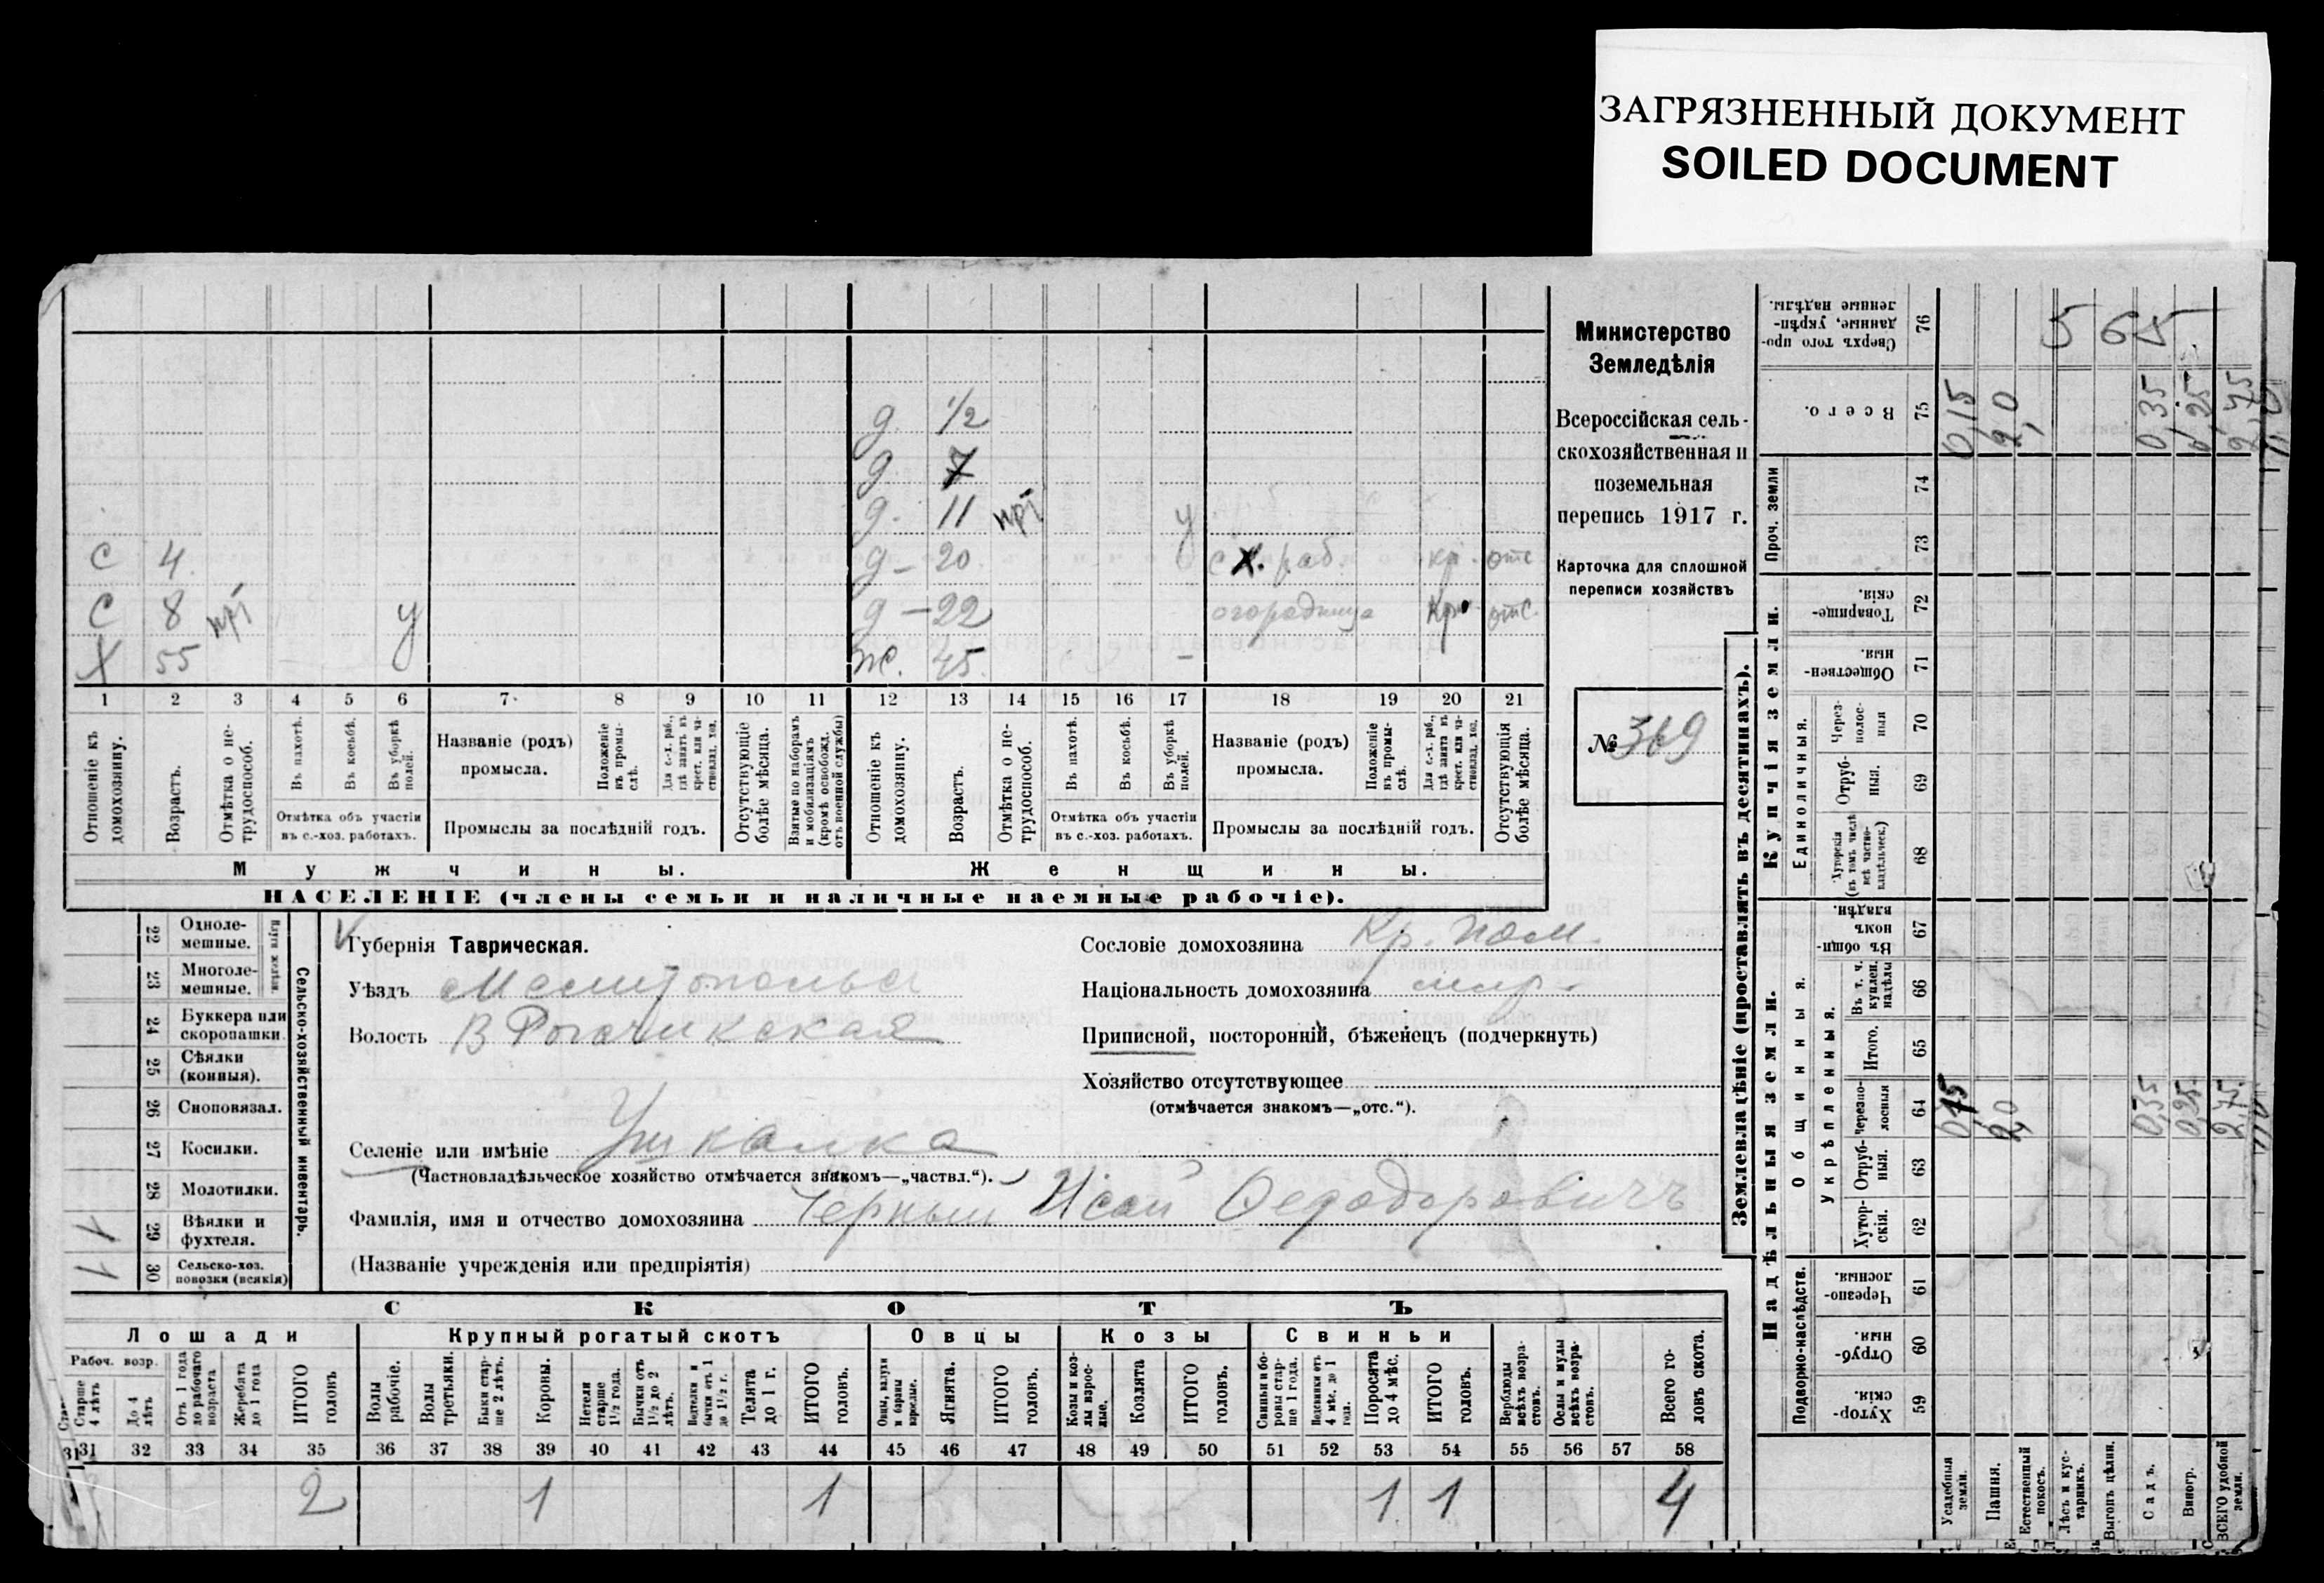 ЗАГРЯЗНЕННЫЙ ДОКУМЕНТ
SOILED DOCUMENT
д. 1/2
д. 7
д. 11 нрі у
С 4 д – 20 с.х. раб. кр. отс
С 8 нрі у д – 22 огородница Кр. отс.
Х 55 ж. 45
1 2 3 4 5 6 7 8 9 10 11 12 13 14 15 16 17 18 19 20 21
Отношеніе къ домохозяину.
Возрастъ.
Отмѣтка о нетрудоспособ.
Въ пахотѣ.
Въ косьбѣ.
Въ уборкѣ полей.
Отмѣтка объ участіи въ с.-хоз. работахъ.
Названіе (родъ) промысла.
Положеніе въ промыслѣ.
Для с.-х. раб., гдѣ занятъ въ крест. или частновлад. хоз.
Промыслы за послѣдній годъ.
Отсутствующіе болѣе мѣсяца.
Взятые по наборамъ и мобилизаціямъ (кромѣ освобожд. отъ военной службы)
Отношеніе къ домохозяину.
Возрастъ.
Отмѣтка о нетрудоспособ.
Въ пахотѣ.
Въ косьбѣ.
Въ уборкѣ полей.
Отмѣтка объ участіи въ с.-хоз. работахъ.
Названіе (родъ) промысла.
Положеніе въ промыслѣ.
Для с.-х. раб., гдѣ занята въ крест. или частновлад. хоз.
Промыслы за послѣдній годъ.
Отсутствующія болѣе мѣсяца.
Мужчины. Женщины.
НАСЕЛЕНІЕ (члены семьи и наличные наемные рабочіе).
Министерство
Земледѣлія
Всероссійская сель-
скохозяйственная и
поземельная
перепись 1917 г.
Карточка для сплошной
переписи хозяйствъ
№ 369
22 Одноле-мешные.
23 Многоле-мешные.
24 Буккера или скоропашки.
25 Сѣялки (конныя).
26 Сноповязал.
27 Косилки.
28 Молотилки.
29 Вѣялки и фухтеля. 1
30 Сельско-хоз. повозки (всякія) 1
Сельско-хозяйственный инвентарь.
Губернія Таврическая.
Уѣздъ Мелитопольск
Волость В Рогачикская
Селеніе или имѣніе Ушкалка
(Частновладѣльческое хозяйство отмѣчается знакомъ—„частвл.“).
Фамилія, имя и отчество домохозяина Черныш Исай Федодорович
(Названіе учрежденія или предпріятія)
Сословіе домохозяина Кр. пом.
Національность домохозяина млр.
Приписной, посторонній, бѣженецъ (подчеркнуть)
Хозяйство отсутствующее
(отмѣчается знакомъ—„отс.“).
СКОТЪ
Лошади Крупный рогатый скотъ Овцы Козы Свиньи
Рабоч. возр.
Старше 4 лѣтъ
До 4 лѣтъ
Отъ 1 года до рабочаго возраста
Жеребята до 1 года
ИТОГО головъ
Волы рабочіе.
Волы третьяки.
Быки старше 2 лѣтъ.
Коровы.
Нетели старше 1½ года.
Бычки отъ 1½ до 2 лѣтъ.
Телята до 1 г.
ИТОГО головъ.
Ягнята.
ИТОГО головъ.
Козы и козлы взрослые.
Козлята
ИТОГО головъ.
Свиньи и боровы старше 1 года.
Подсвинки отъ 4 мѣс. до 1 года.
Поросята до 4 мѣс.
ИТОГО головъ.
Верблюды всѣхъ возрастовъ.
Ослы и мулы всѣхъ возрастовъ.
Всего головъ скота.
31 32 33 34 35 36 37 38 39 40 41 42 43 44 45 46 47 48 49 50 51 52 53 54 55 56 57 58
2 1 1 1 1 4
Землевладѣніе (проставлять въ десятинахъ).
Надѣльныя земли. Купчія земли. Проч. земли
Подворно-наслѣдств.
Общинныя.
Укрѣпленныя.
Единоличныя.
59 Хутор-скія.
60 Отруб-ныя.
61 Черезпо-лосныя.
62 Хутор-скія.
63 Отруб-ныя.
64 Черезпо-лосныя
65 Итого.
66 Въ т. ч. куплен. надѣлы
67 Въ общин-номъ владѣн.
68 Хуторскія (въ томъ числѣ всѣ частно-владѣльческ.)
69 Отруб-ныя.
70 Через-полос-ныя
71 Обществен-ныя.
72 Товарище-скія.
73
74
75 Всего.
76 Сверхъ того про-данные, укрѣп-ленные надѣлы.
565
0,15 2,0 0,35 0,25 2,75
0,15 2,0 0,35 0,25 2,75
Усадебныя земли.
Пашня.
Естественный покосъ.
Лѣсъ и кус-тарникъ.
Выгонъ цѣлин.
Садъ.
Виногр.
ВСЕГО удобной земли.